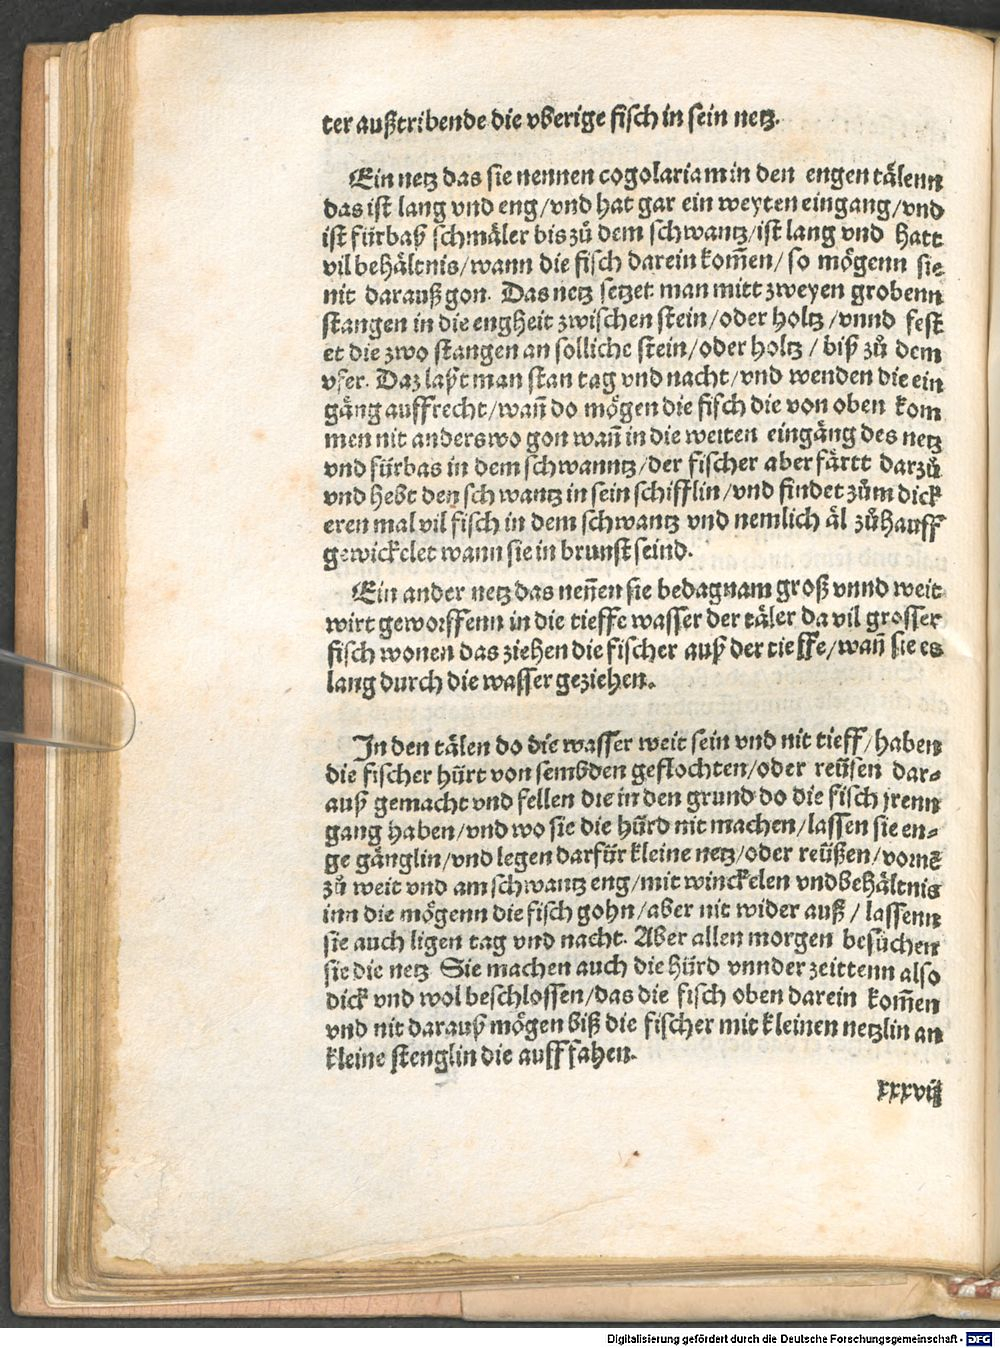 ter außtribende die vberige fisch in sein netz.
Ein netz das sie nennen cogolariam in den engen tälenn
das ist lang vnd eng/vnd hat gar ein weyten eingang/vnd
ist fürbaß schmäler bis zů dem schwantz/ist lang vnd hatt
vil behältnis/wann die fisch darein kom̃en/so mögenn sie
nit darauß gon. Das netz setzet man mitt zweyen grobenn
stangen in die engheit zwischen stein/oder holtz/vnnd fest
et die zwo stangen an solliche stein/oder holtz/biß zů dem
vfer. Daz laßt man stan tag vnd nacht/vnd wenden die ein
gäng auffrecht/wañ do mögen die fisch die von oben kom
men nit anderswo gon wañ in die weiten eingäng des netz
vnd fürbas in dem schwanntz/der fischer aber färtt darzů
vnd hebt den schwantz in sein schifflin/vnd findet zům dick
eren mal vil fisch in dem schwantz vnd nemlich äl zůhauff
gewickelet wann sie in brunst seind.
Ein ander netz das neñen sie bedagnam groß vnnd weit
wirt geworffenn in die tieffe wasser der täler da vil grosser
fisch wonen das ziehen die fischer auß der tieffe/wañ sie es
lang durch die wasser geziehen.
In den tälen do die wasser weit sein vnd nit tieff/haben
die fischer hürt von sembden geflochten/oder reüsen dar-
auß gemacht vnd fellen die in den grund do die fisch jrenn
gang haben/vnd wo sie die hürd nit machen/lassen sie en-
ge gänglin/vnd legen darfür kleine netz/oder reüßen/vornē
zů weit vnd am schwantz eng/mit winckelen vnd behältnis
inn die mögenn die fisch gohn/aber nit wider auß/lassenn
sie auch ligen tag vnd nacht. Aber allen morgen besůchen
sie die netz Sie machen auch die hürd vnnder zeittenn also
dick vnd wol beschlossen/das die fisch oben darein kom̃en
vnd nit darauß mögen biß die fischer mit kleinen netzlin an
kleine stenglin die auff fahen.
xxxvij
Digitalisierung gefördert durch die Deutsche Forschungsgemeinschaft - DFG